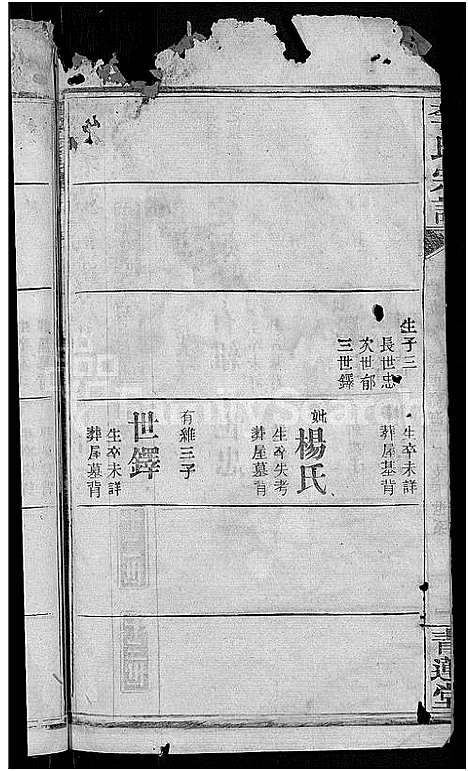 李氏宗譜
青蓮堂
生子三
長世忠
次世郁
三世鐸
生卒未詳
葬屋基背
妣楊氏
生卒失考
葬屋墓背
有雑三子
世鐸
生卒未詳
葬屋墓背